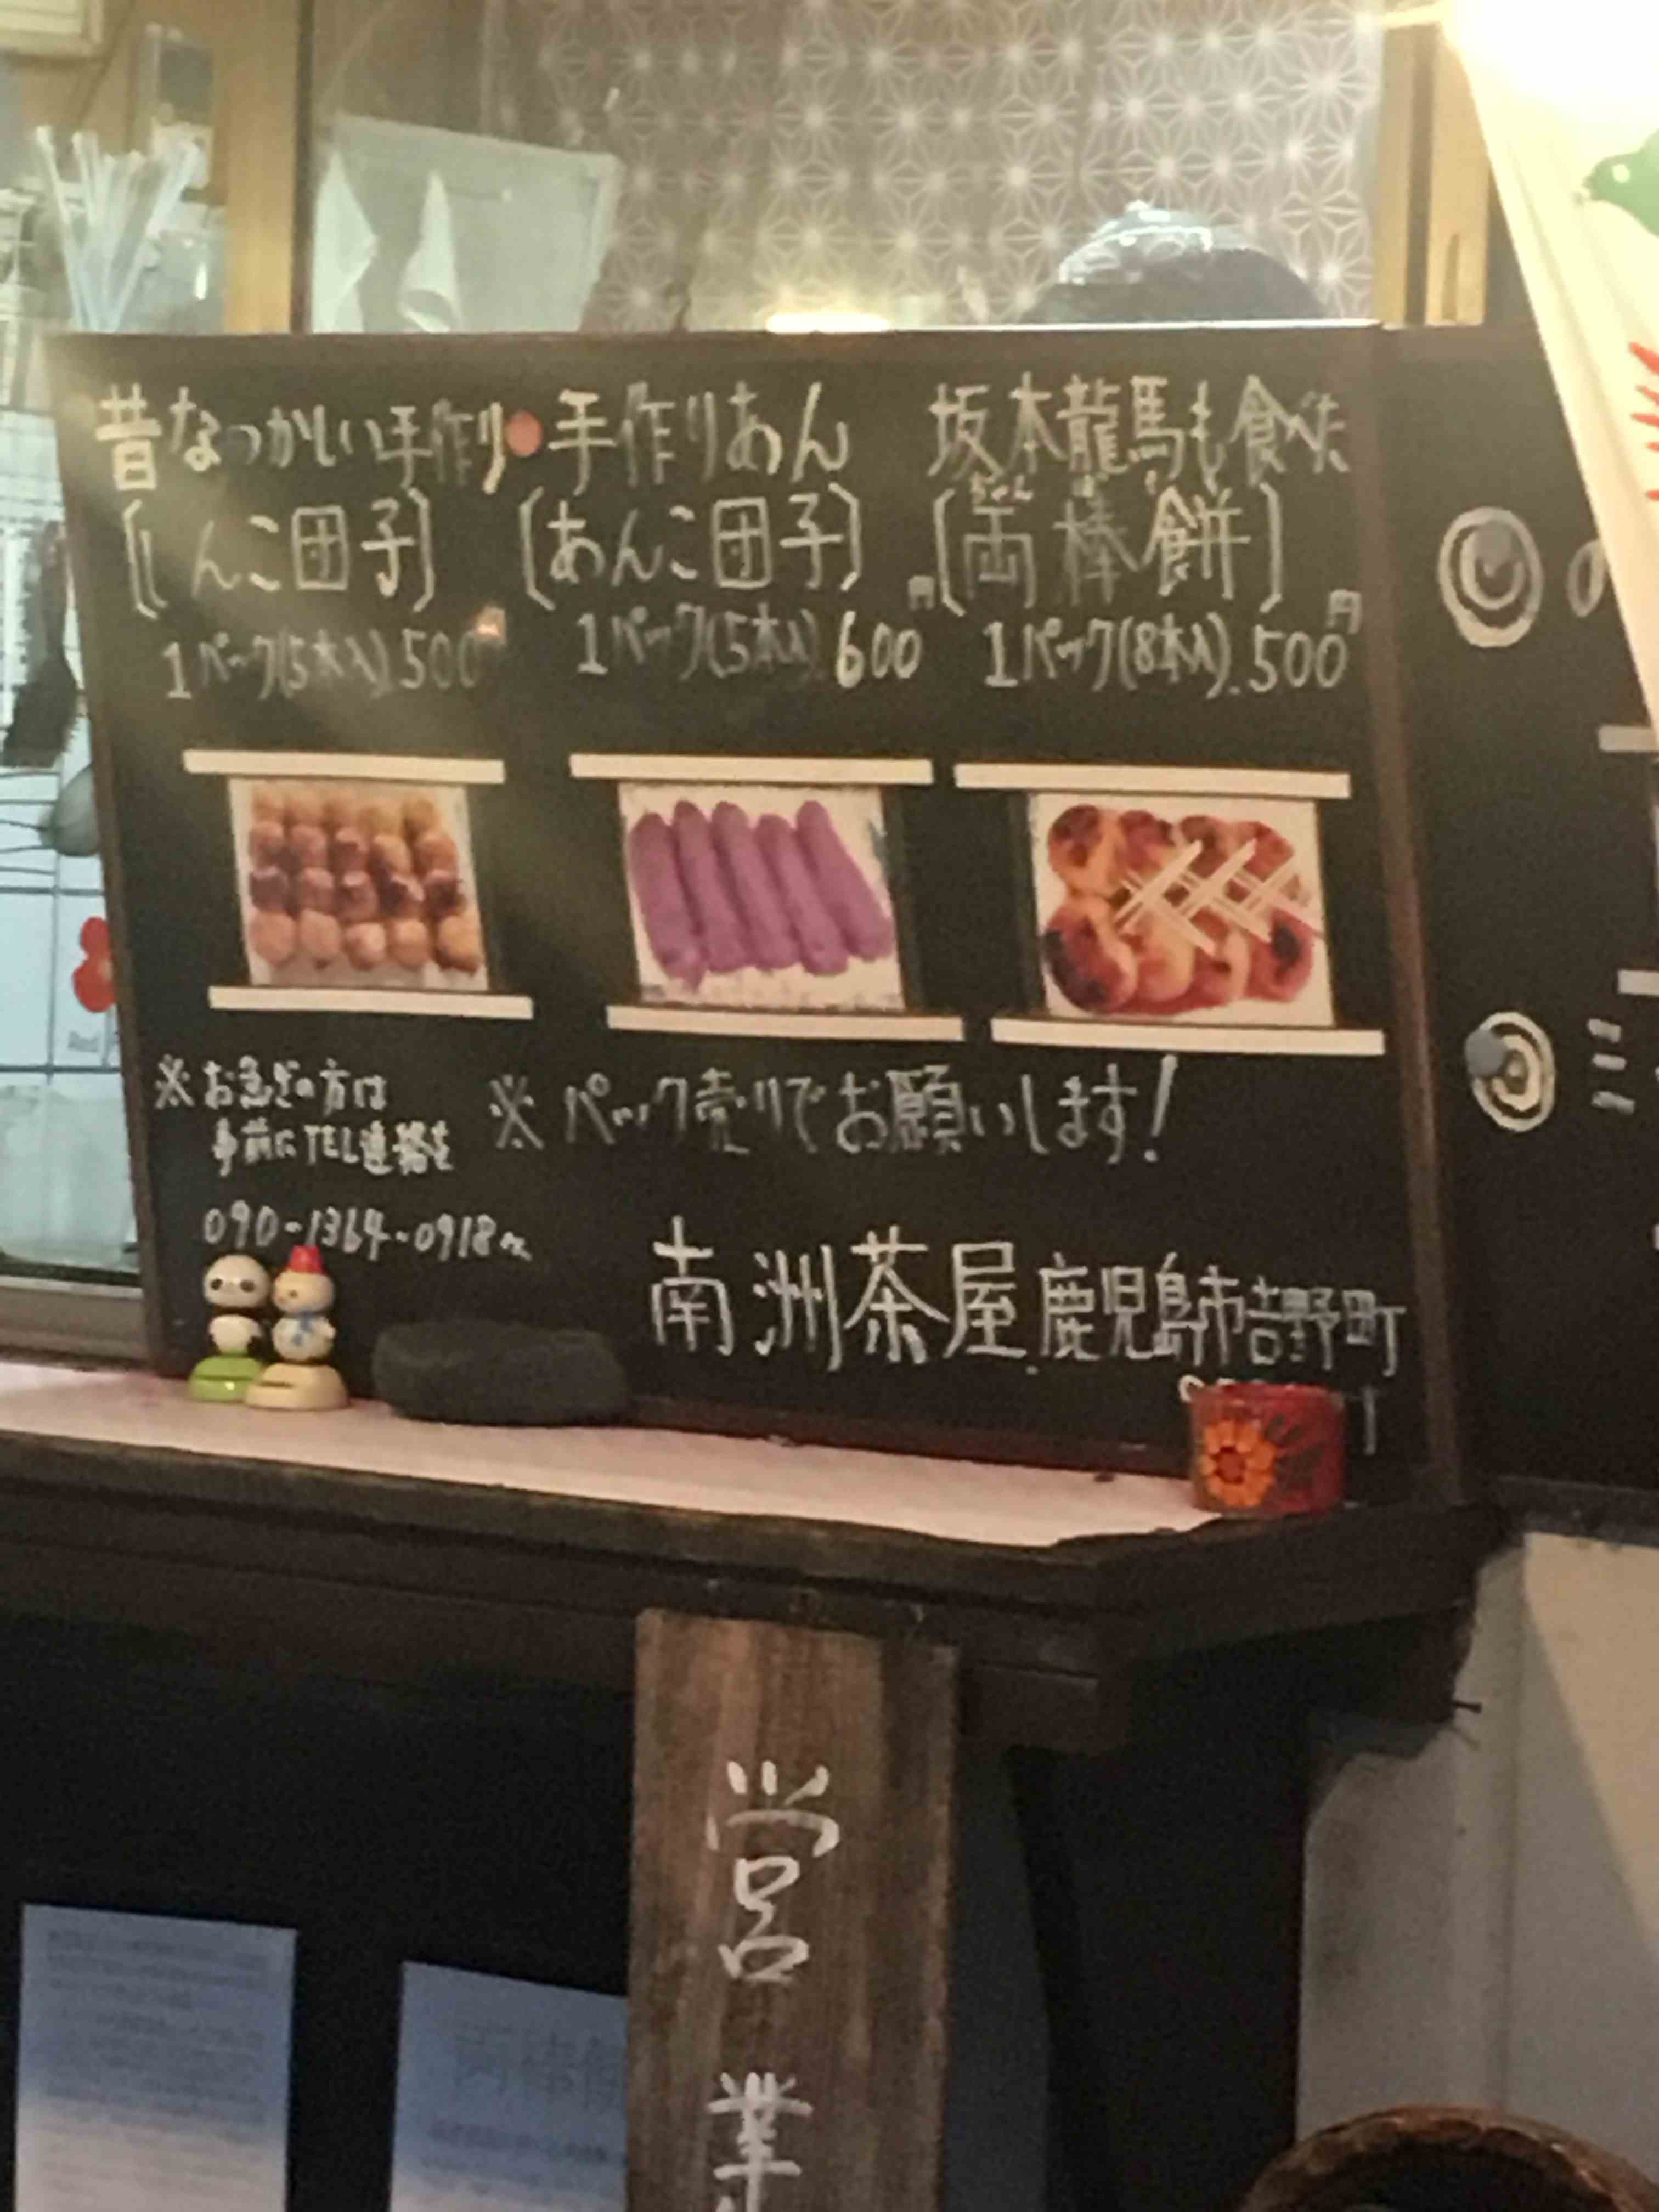 昔なつかしい手作り
[しんこ団子]
1パック(5本入)500円
手作りあん
[あんこ団子]
1パック(5本入)600円
坂本龍馬も食べた
ぢゃんぼもち
[両棒餅]
1パック(8本入)500円
※お急ぎの方は
事前にTEL連絡を
090-1364-0918
※パック売りでお願いします!
南洲茶屋 鹿児島市吉野町
営業